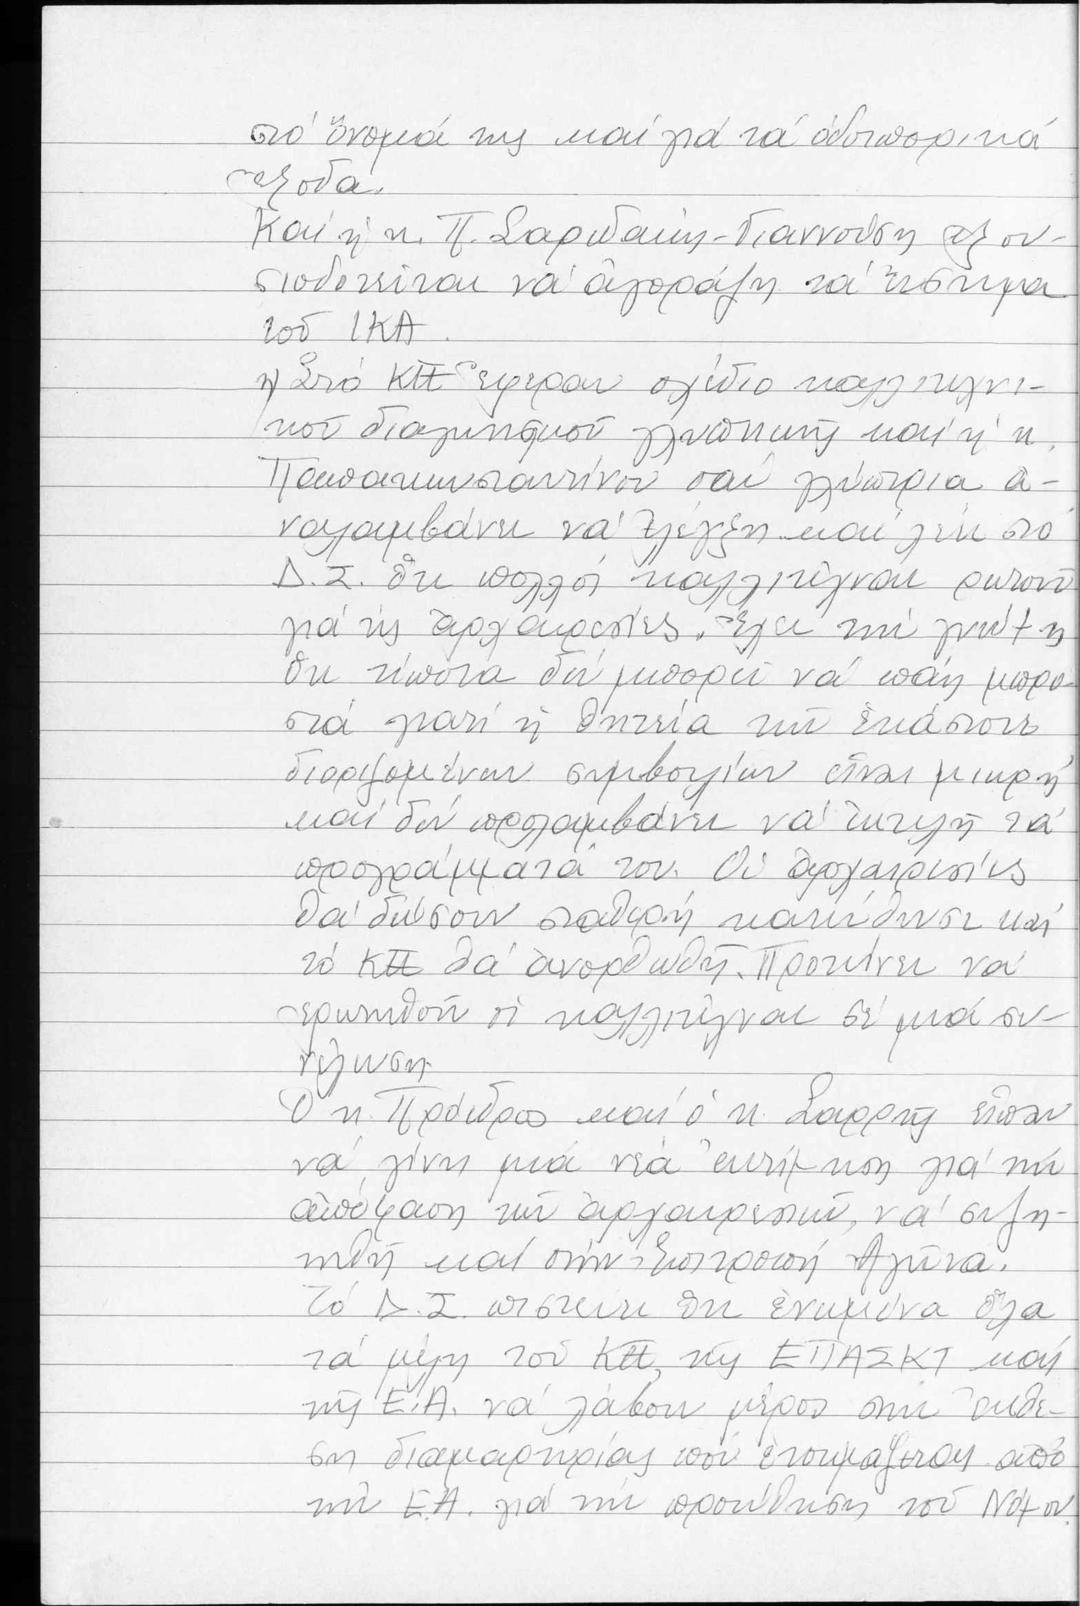 στό ὄνομά της καί γιά τά ὁδοιπορικά
ἔξοδα.
Καί ἡ κ. Π. Σαριδάκη-Γιαννούση ἐξου-
σιοδοτεῖται νά ἀγοράζη τά ἔνσημα
τοῦ ΙΚΑ.
η) Στό ΚΠ ἔφεραν σχέδιο καλλιτεχνι-
κοῦ διαγωνισμοῦ γλυπτικῆς καί ἡ κ.
Παπακωνσταντίνου σάν γλύπτρια ἀ-
ναλαμβάνει νά ἐλέγξη καί λέει στό
Δ.Σ. ὅτι πολλοί καλλιτέχναι ρωτοῦν
γιά τίς ἀρχαιρεσίες. Ἔχει τήν γνώμη
ὅτι τίποτα δέν μπορεῖ νά πάη μπρο-
στά γιατί ἡ θητεία τῶν ἑκάστοτε
διοριζομένων συμβουλίων εἶναι μικρή
καί δέν προλαμβάνει νά ἐκτελῆ τά
προγράμματά του. Οἱ ἀρχαιρεσίες
θά δώσουν σταθερή κατεύθυνση καί
τό ΚΠ θά ἀνορθωθῆ. Προτείνει νά
ἐρωτηθοῦν οἱ καλλιτέχναι σέ μιά συ-
νέλευση.
Ὁ κ. Πρόεδρος καί ὁ κ. Σαρρής εἶπαν
νά γίνη μιά νέα ἐκτίμηση γιά τήν
ἀπόφαση τῶν ἀρχαιρεσιῶν, νά συζη-
τηθῆ καί στήν Ἐπιτροπή Ἀγῶνα.
Τό Δ.Σ. πιστεύει ὅτι ἑνωμένα ὅλα
τά μέλη τοῦ ΚΠ, τῆς ΕΠΑΣΚΤ καί
τῆς Ε.Α. νά λάβουν μέρος στήν ἔκθε-
ση διαμαρτυρίας πού ἑτοιμάζεται ἀπό
τήν Ε.Α. γιά τήν προώθηση τοῦ Νόμου.